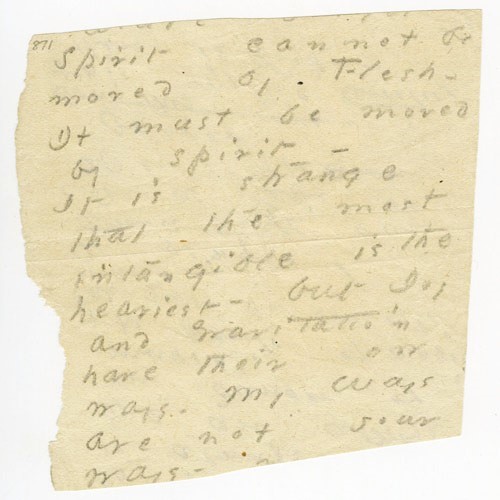 871
Spirit cannot be
moved by Flesh -
It must be moved
by spirit -
It is strange
that the most
intangible is the
heaviest - but Joy
and Gravitation
have their own
ways. My ways
are not your
ways -